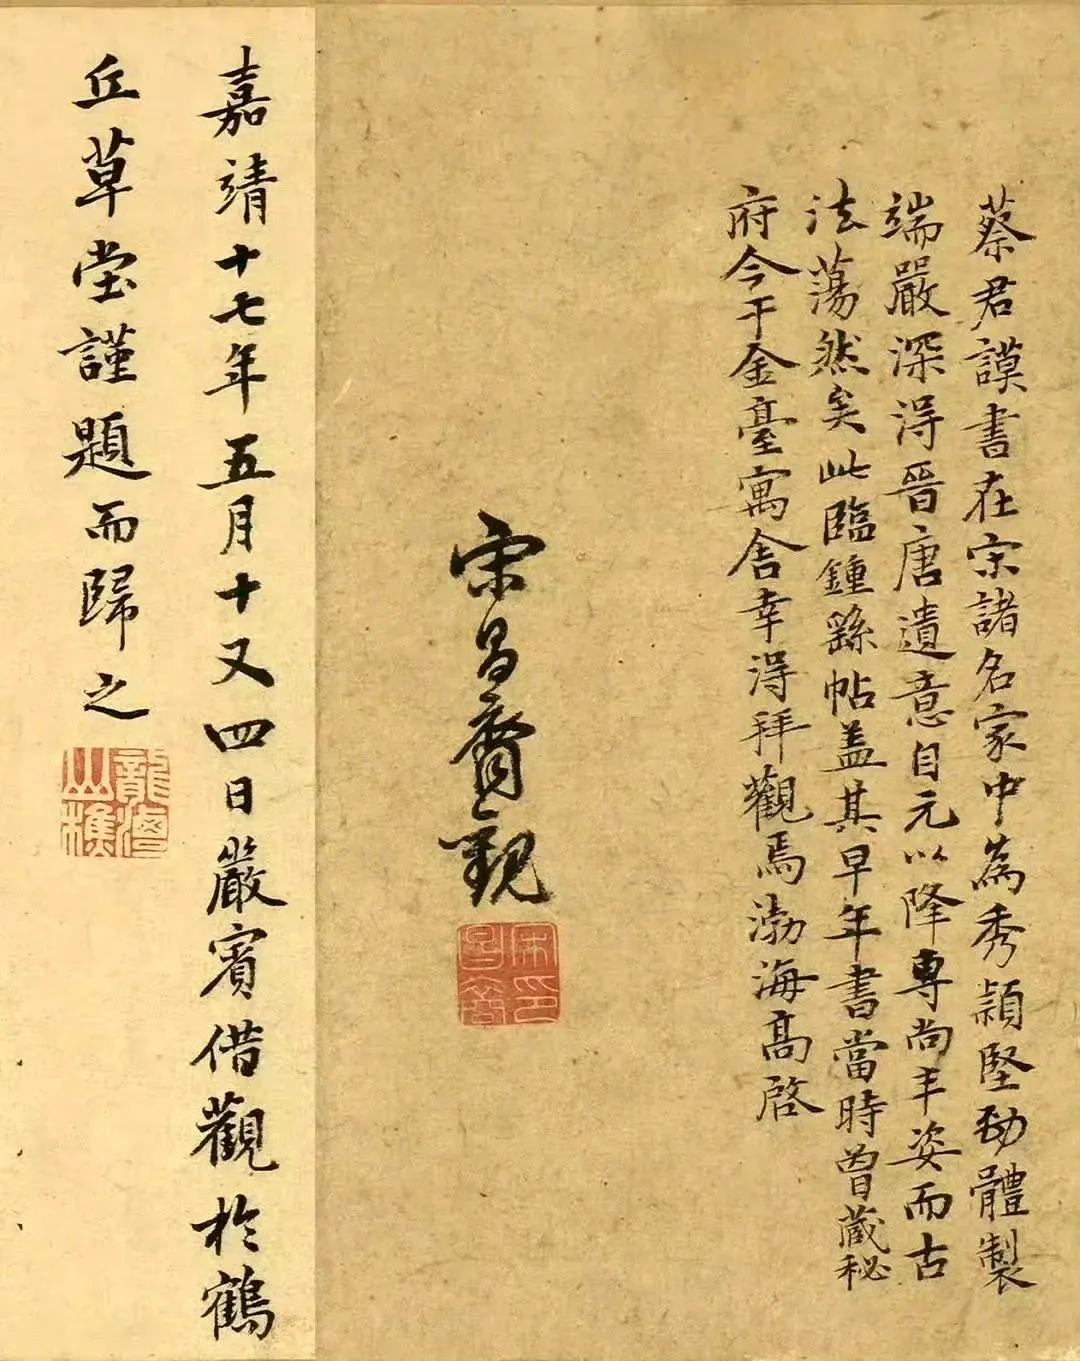 蔡君謨書在宋諸名家中為秀穎堅勁體製
端嚴深得晉唐遺意自元以降專尚丰姿而古
法蕩然矣此臨鍾繇帖盖其早年書當時曾藏秘
府今于金臺寓舍幸得拜觀焉渤海高啓
宋昌裔觀
宋印
昌裔
嘉靖十七年五月十又四日嚴賓借觀於鶴
丘草堂謹題而歸之
龍灣
山樵